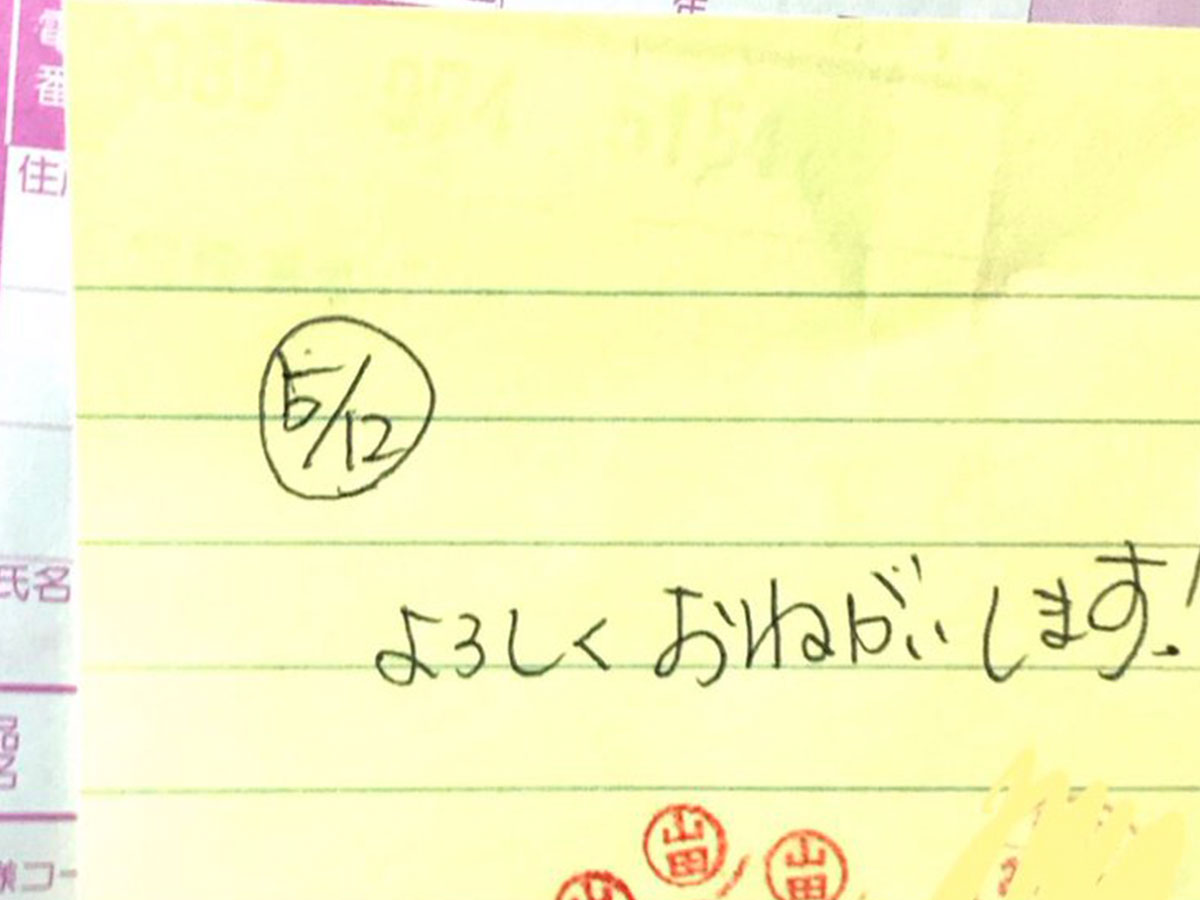 番
住
5/12
よろしくおねがいします!
氏名
品名
コー
山田
山田